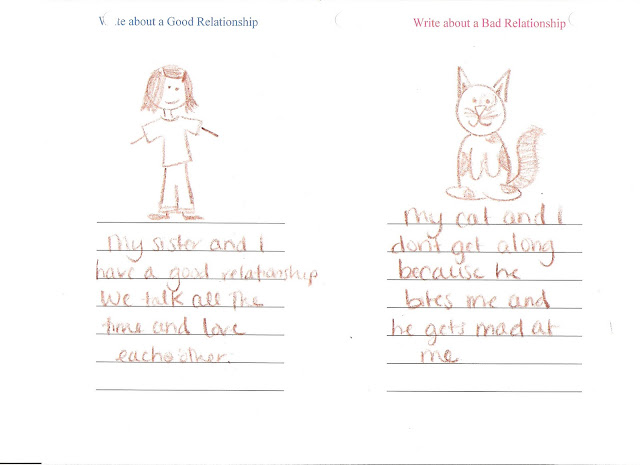 Write about a Good Relationship
My sister and I
have a good relationship
We talk all the
time and love
eachother.
Write about a Bad Relationship
My cat and I
don't get along
because he
bites me and
he gets mad at
me